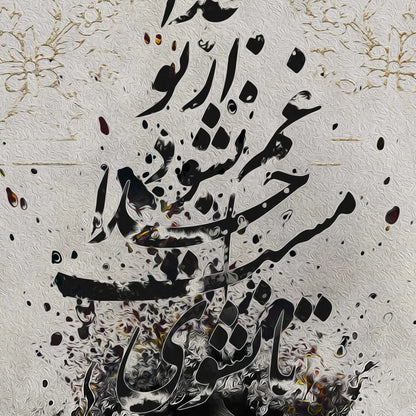 تا نشوی
مست خدا
غم نشود
از تو
جدا